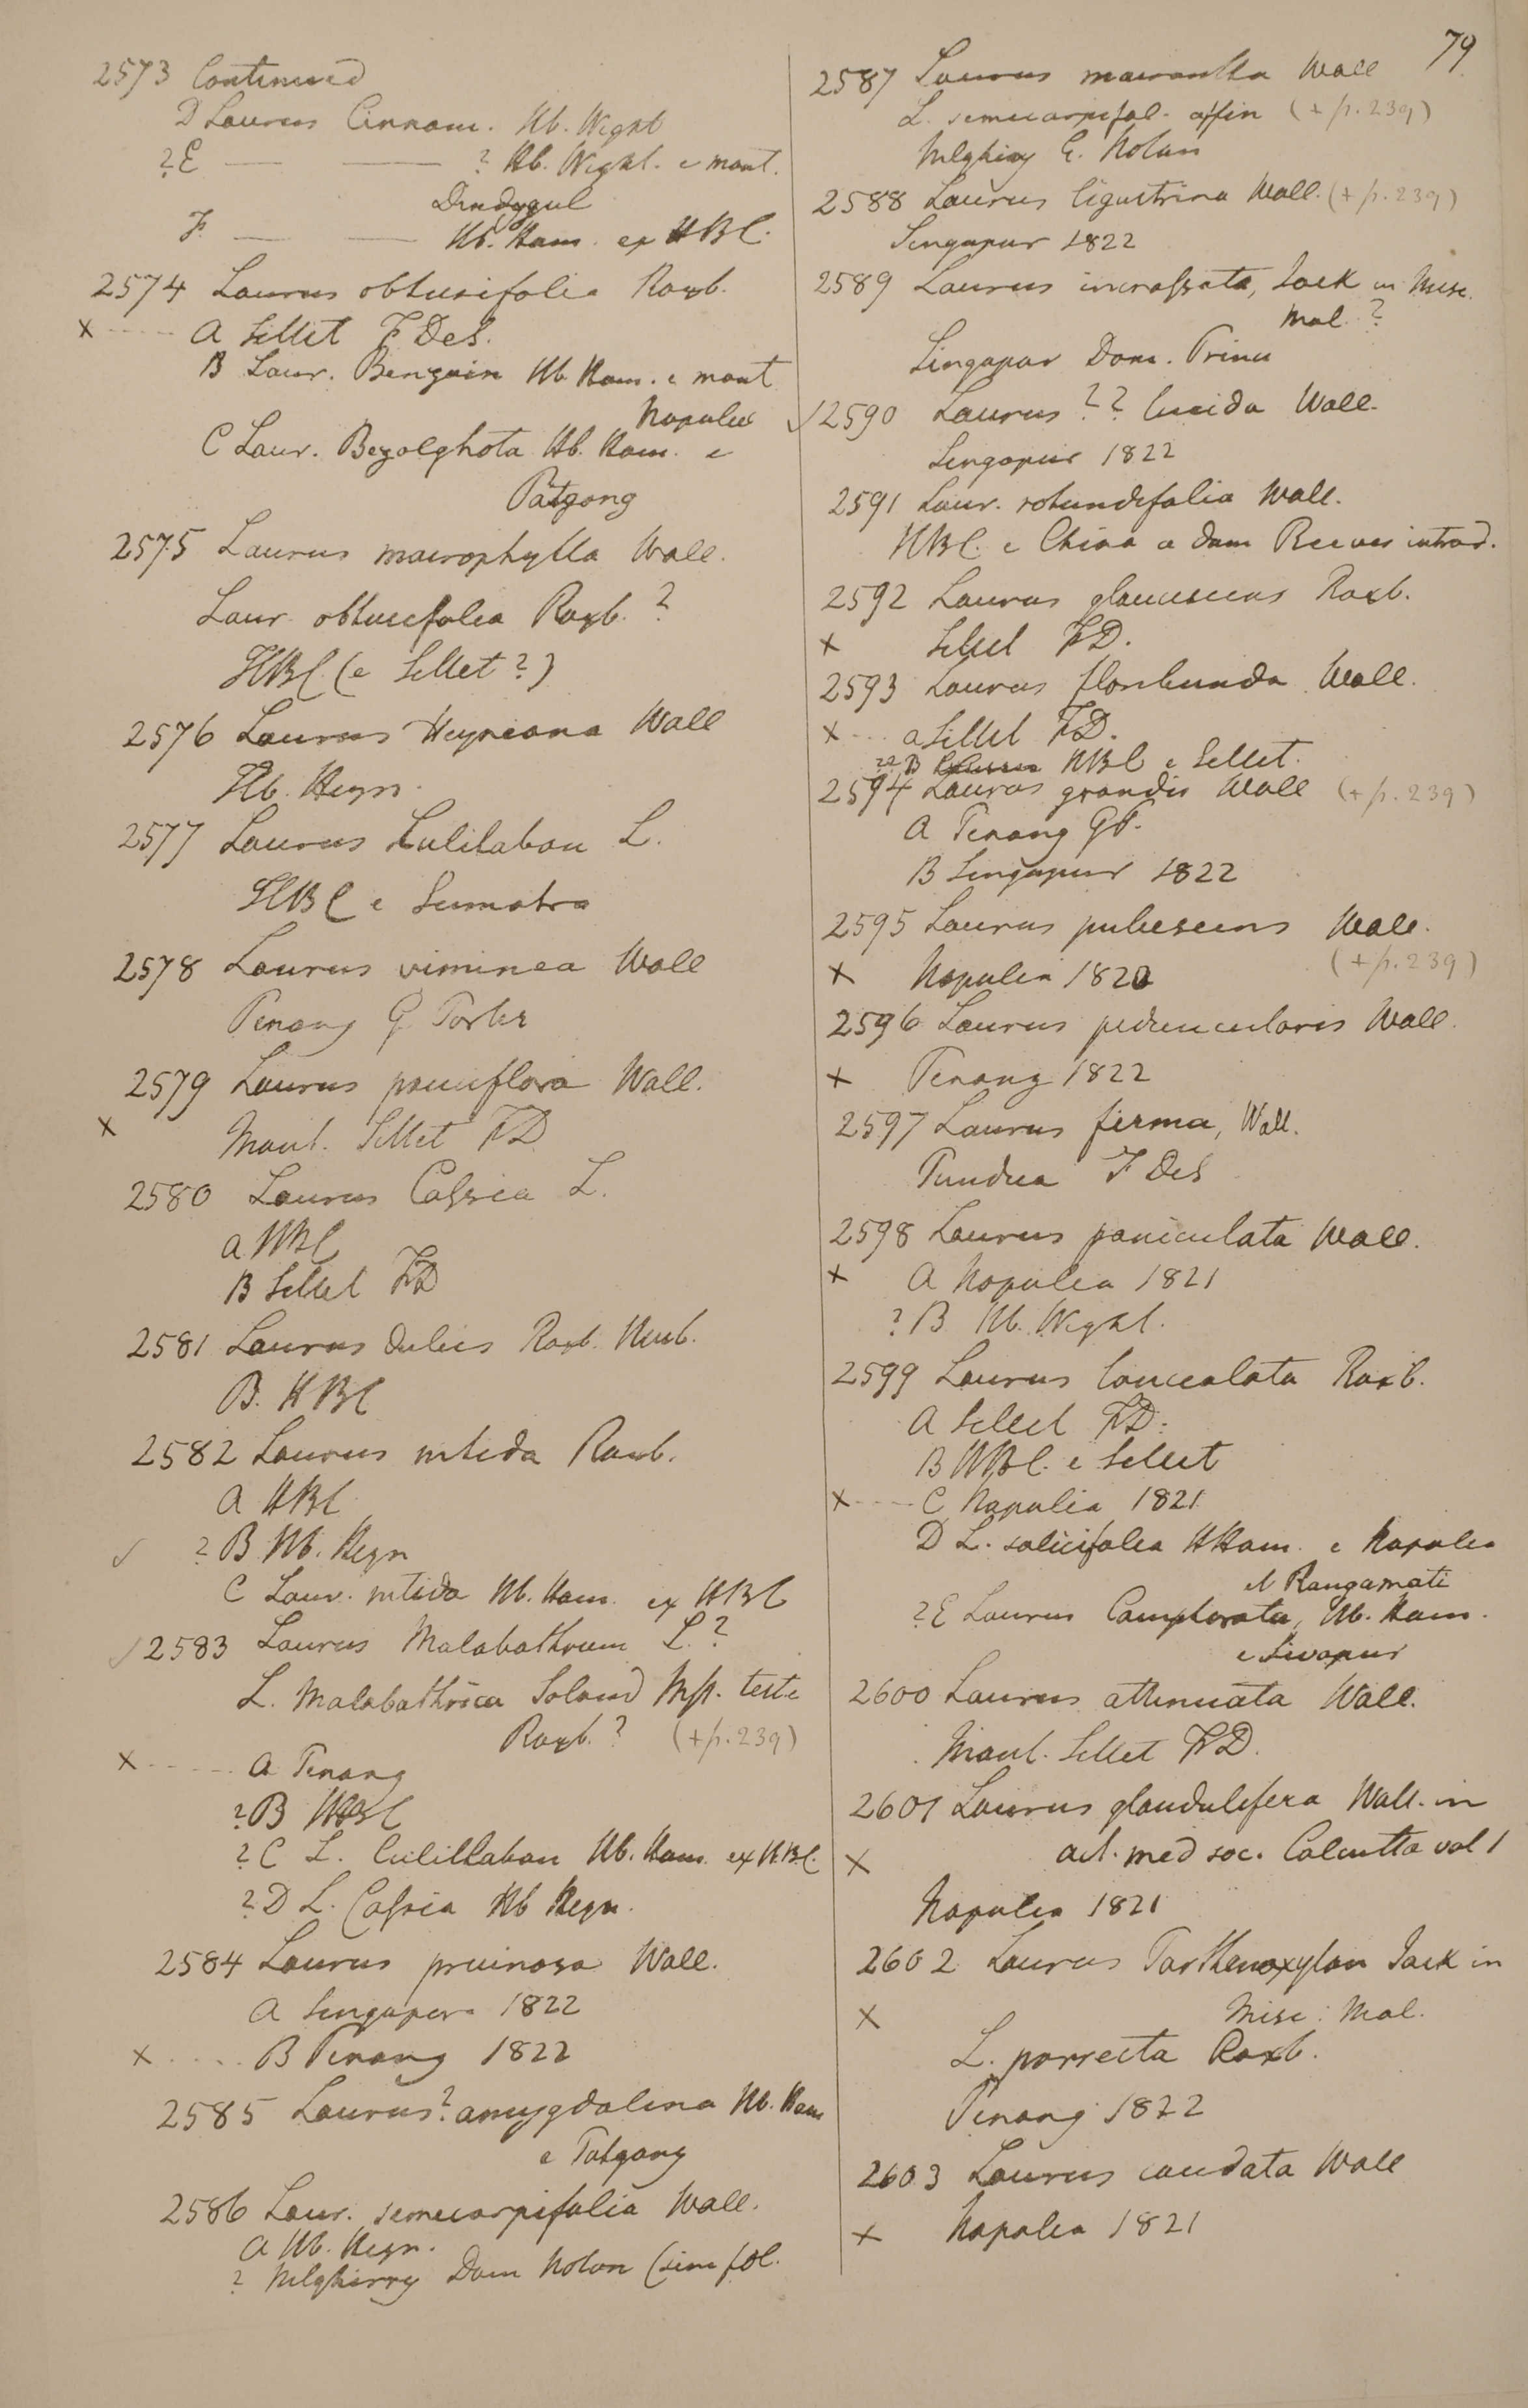 79
2573 Continued
D Laurus Cinnam. Hb. Wight
?E — — ? Hb. Wight. e mont.
Dindygul
F. — — Hb. Ham. ex HBC.
2574 Laurus obtusifolia Roxb.
x ---- A Sillet F. DeS.
B Laur. Benzoin Hb Ham. e mont
Napaliae
C Laur. Bezolghota Hb. Ham. e
Patgong
2575 Laurus macrophylla Wall.
Laur. obtusifolia Roxb. ?
HBC (e Sillet ?)
2576 Laurus Heyneana Wall
Hb. Heyn.
2577 Laurus Culilaban L.
HBC e Sumatra
2578 Laurus viminea Wall
Penang G. Porter
2579 Laurus pauciflora Wall.
x Mont. Sillet FD
2580 Laurus Cassia L.
a HBC
B Sillet FD
2581 Laurus dulcis Roxb. Herb.
B. HBC
2582 Laurus nitida Roxb.
A HBC
✓ ?B Hb. Heyn
C Laur. nitida Hb. Ham. ex HBC
✓ 2583 Laurus Malabathrum L.?
L. Malabathrica Soland Mss. teste
Roxb. ? (+p. 239)
x ----- A Penang
?B HBC
?C L. Culillaban Hb. Ham. ex H.B.C.
?D L. Cassia Hb Heyn.
2584 Laurus pruinosa Wall.
A Singapore 1822
x .... B Penang 1822
2585 Laurus? amygdalina Hb. Ham
e Patgong
2586 Laur. semecarpifolia Wall.
A Hb. Heyn.
? Nilgherry Dom Noton (sine fol.
2587 Laurus macrantha Wall
L. semecarpifol. affin (+p. 239)
Nilghiry E. Noton
2588 Laurus ligustrina Wall. (+p. 239)
Singapur 1822
2589 Laurus incrassata, Jack in Misc.
Mal. ?
Singapur Dom. Prince
✓ 2590 Laurus ?? lucida Wall.
Singapur 1822
2591 Laur. rotundifolia Wall.
HBC. e China a dom Reeves introd.
2592 Laurus glaucescens Roxb.
x Sillet FD.
2593 Laurus floribunda Wall.
x --- a Sillet FD.
?? B Laurus HBC e Sillet.
2594 Laurus grandis Wall (+p. 239)
A Penang GP.
B Singapur 1822
2595 Laurus pubescens Wall.
(+p. 239)
x Napalia 1820
2596 Laurus peduncularis Wall.
x Penang 1822
2597 Laurus firma, Wall.
Pundua F DeS
2598 Laurus paniculata Wall.
x A Napalia 1821
? B Hb. Wight.
2599 Laurus lanceolata Roxb.
A Sillet FD.
B HBC. e Sillet
x ---- C Napalia 1821
D L. salicifolia HHam. e Napalia
et Rangamati
?E Laurus Camphorata, Hb. Ham.
e Sivapur
2600 Laurus attenuata Wall.
Mont. Sillet FD.
2601 Laurus glandulifera Wall. in
x act. med soc. Calcutta vol 1
Napalia 1821
2602 Laurus Parthenoxylon Jack in
x Misc: Mal.
L. porrecta Roxb.
Penang 1822
2603 Laurus caudata Wall
x Napalia 1821